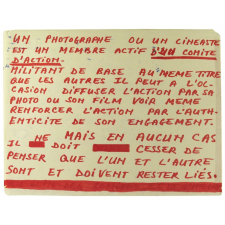 UN PHOTOGRAPHE OU UN CINEASTE
EST UN MEMBRE ACTIF D'UN COMITE
D'ACTION.
MILITANT DE BASE AU MEME TITRE
QUE LES AUTRES IL PEUT A L'OC-
CASION DIFFUSER L'ACTION PAR SA
PHOTO OU SON FILM VOIR MEME
RENFORCER L'ACTION PAR L'AUTH-
ENTICITE DE SON ENGAGEMENT.
IL NE MAIS EN AUCUN CAS
DOIT CESSER DE
PENSER QUE L'UN ET L'AUTRE
SONT ET DOIVENT RESTER LIÉS.